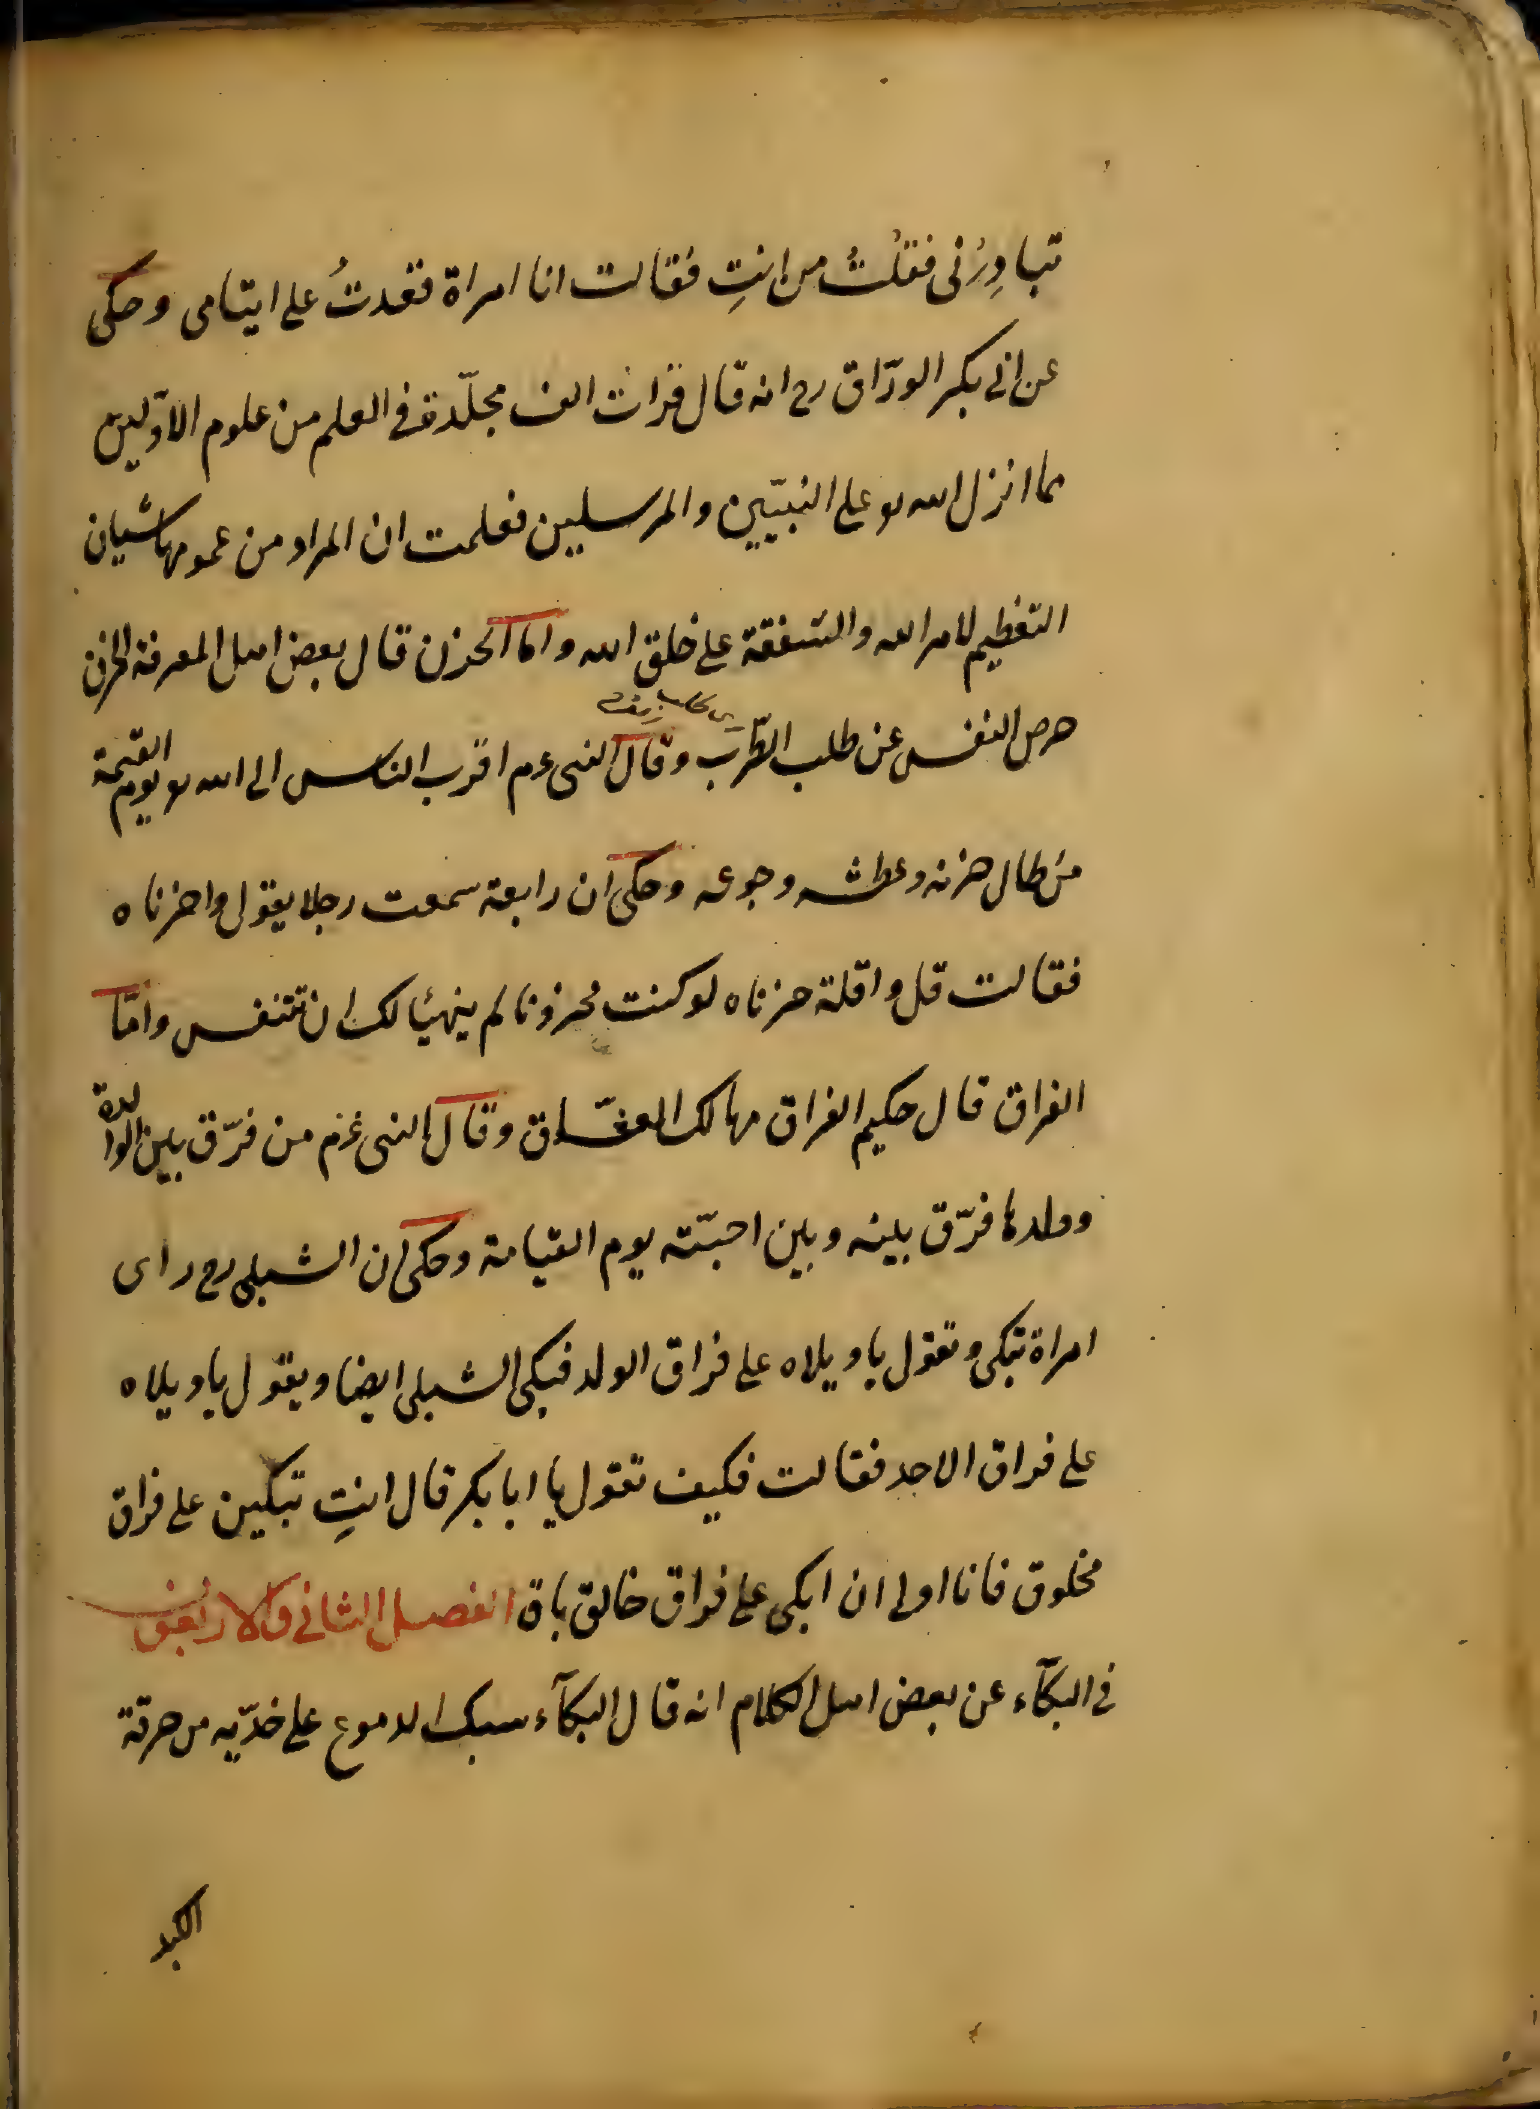 تبادِرُنى فقلتُ من انتِ فقالت انا امراة قعدتُ على ايتامى وحكى
عن ابى بكر الورّاق رح انه قال قرات الف مجلّدة فى العلم من علوم الاوّلين
مما انزل الله تع على النبيّين والمرسلين فعلمت ان المراد من عمومها شيان
التعظيم لامر الله والشفقة على خلق الله واما الحزن قال بعض اهل المعرفة الحزن
حرص النفس عن طلب الطّرب وقال النبى عم اقرب الناس الى الله تع يوم القيمة
من طال حزنه وعطشه وجوعه وحكى ان رابعة سمعت رجلا يقول واحزناه
فقالت قل واقلة حزناه لو كنت محزونا لم يتهيأ لك ان تتنفس وامّا
الفراق قال حكيم الفراق مهالك العشّاق وقال النبى عم من فرّق بين الوالدة
وولدها فرّق بينه وبين احبّته يوم القيامة وحكى ان الشبلى رح راى
امراة تبكى وتقول ياويلاه على فراق الولد فبكى الشبلى ايضا ويقول ياويلاه
على فراق الاحد فقالت فكيف تقول يا ابا بكر قال انتِ تبكين على فراق
مخلوق فانا اولى ان ابكى على فراق خالق باق الفصل الثانى والاربعون
فى البكآء عن بعض اهل الكلام انه قال البكآء سبك الدموع على خدّيه من حرقة
الكبد